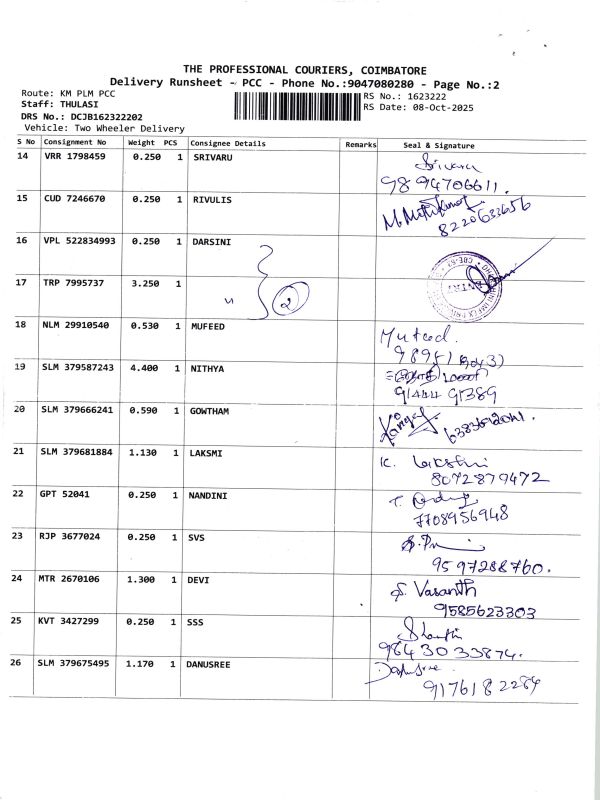 THE PROFESSIONAL COURIERS, COIMBATORE
Delivery Runsheet - PCC - Phone No.:9047080280 - Page No.:2
Route: KM PLM PCC
RS No.: 1623222
Staff: THULASI
RS Date: 08-Oct-2025
DRS No.: DCJB162322202
Vehicle: Two Wheeler Delivery
S No Consignment No Weight PCS Consignee Details Remarks Seal & Signature
14 VRR 1798459 0.250 1 SRIVARU Srivaru
9894706611.
15 CUD 7246670 0.250 1 RIVULIS
8220633656
16 VPL 522834993 0.250 1 DARSINI
17 TRP 7995737 3.250 1 " 2
18 NLM 29910540 0.530 1 MUFEED Mufeed.
19 SLM 379587243 4.400 1 NITHYA
91444 91389
20 SLM 379666241 0.590 1 GOWTHAM
21 SLM 379681884 1.130 1 LAKSMI K. Lakshmi
8072879472
22 GPT 52041 0.250 1 NANDINI
7708956948
23 RJP 3677024 0.250 1 SVS
9597288760.
24 MTR 2670106 1.300 1 DEVI S. Vasanth
9585623303
25 KVT 3427299 0.250 1 SSS Shanthi
9843033874.
26 SLM 379675495 1.170 1 DANUSREE Danusree
9176182284